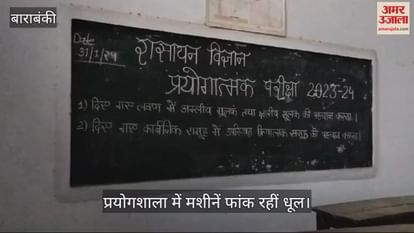 बाराबंकी
अमर उजाला
amarujala.com
Date
31/1/24
रसायन विज्ञान
प्रयोगात्मक परीक्षा 2023-24
1) दिए गए लवण में अम्लीय मूलक तथा क्षारीय मूलक की पहचान करना।
2) दिए गए कार्बनिक समूह से क्रियात्मक समूह की पहचान करना।
प्रयोगशाला में मशीनें फांक रहीं धूल।